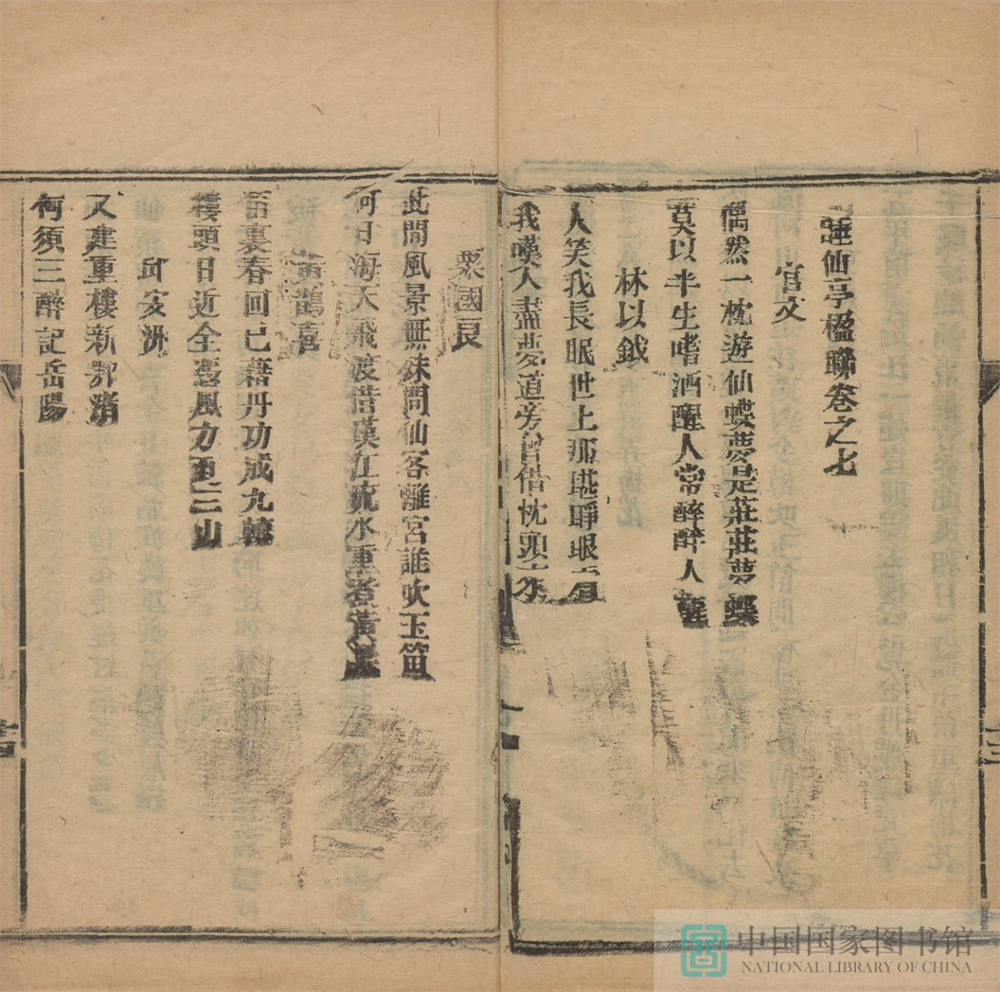 睡仙亭楹聯卷之七
官文
偶然一枕遊仙蝶夢是莊莊夢蝶
莫以半生嗜酒醒人常醉醉人醒
林以鉞
人笑我長眠世上那堪睜眼看
我嘆人盡夢道旁曾借枕頭來
粟國良
此間風景無殊問仙客離宮誰吹玉笛
何日海天飛渡借漢江流水重煮黃粱
鶴喜
壺裏春回已藉丹功成九轉
樓頭日近全憑風力更三山
邱亥洲
又建重樓新鄂渚
何須三醉記岳陽
中国国家图书馆
NATIONAL LIBRARY OF CHINA